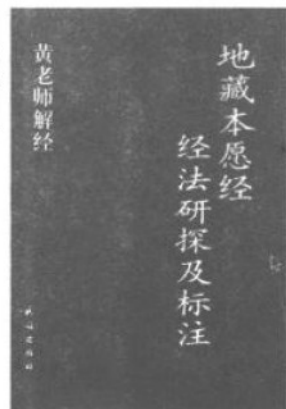 地藏本愿经
经法研探及标注
黄老师解经